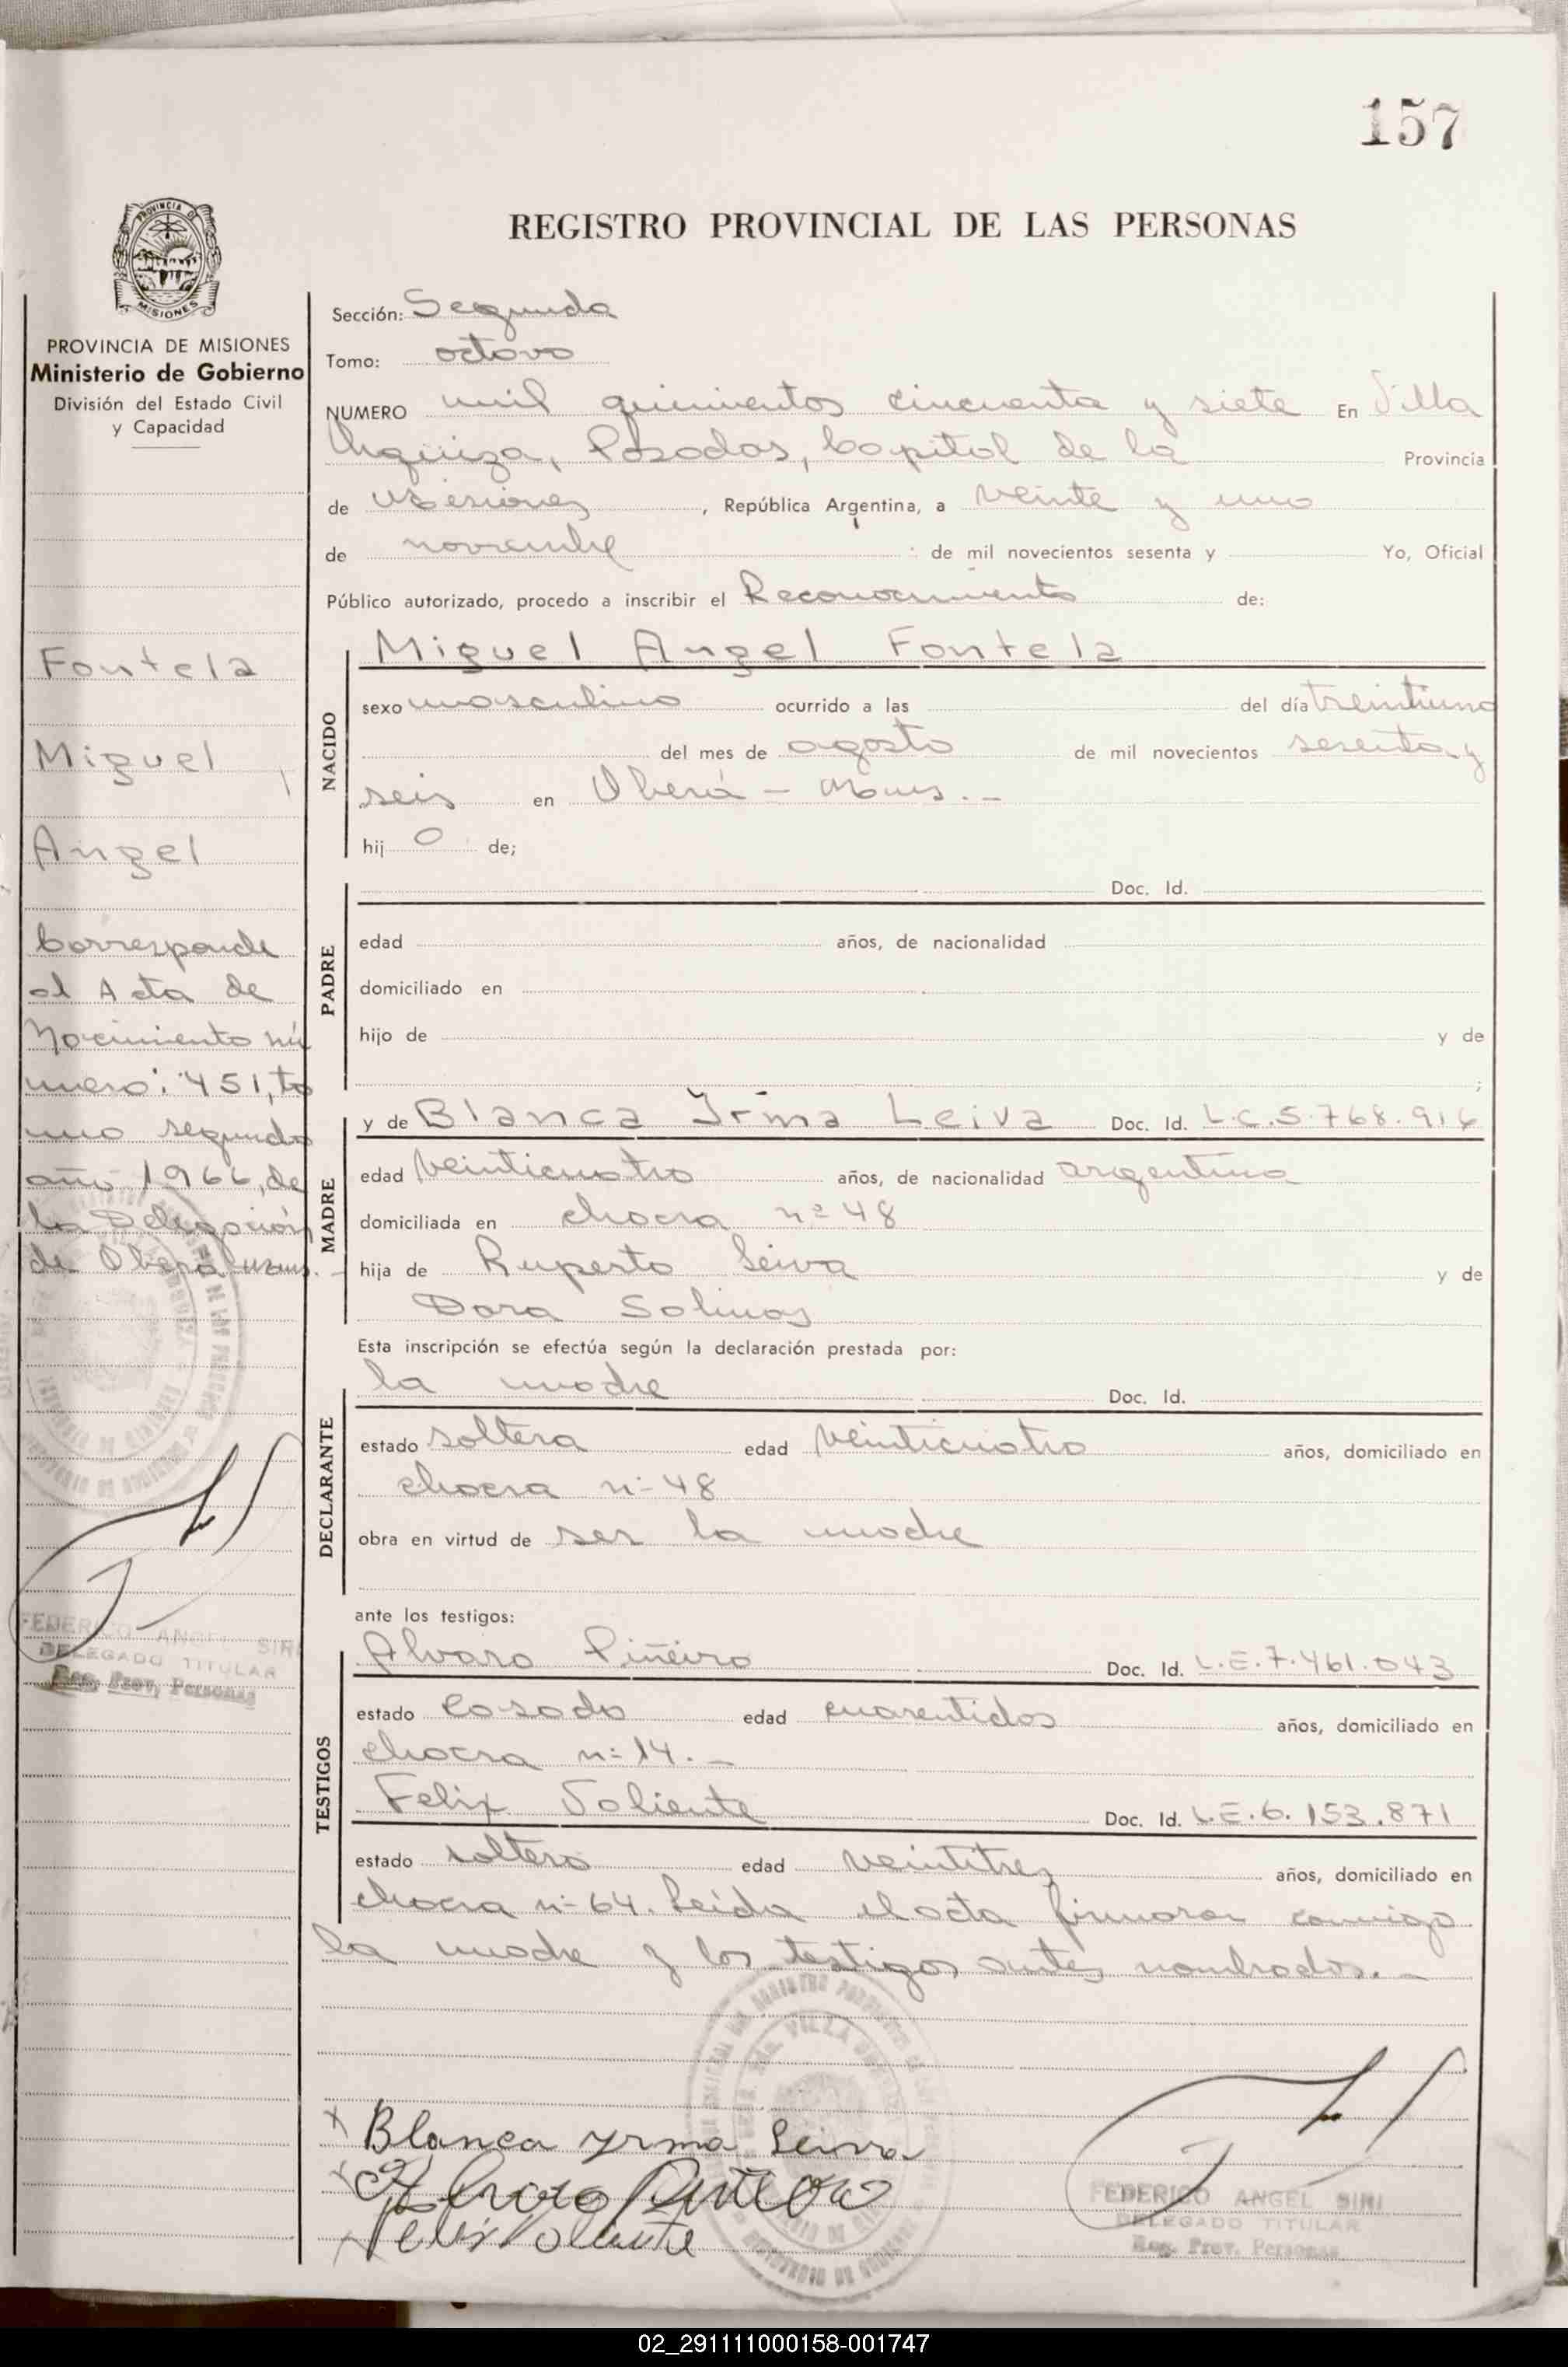 157
PROVINCIA DE
MISIONES
REGISTRO PROVINCIAL DE LAS PERSONAS
PROVINCIA DE MISIONES
Ministerio de Gobierno
División del Estado Civil
y Capacidad
Fontela
Miguel
Angel
Corresponde
al Acta de
Nacimiento nú
mero: 451, to
mo segundo
año 1966, de
la Delegación
de Oberá Mnes.
FEDERICO ANGEL SIRI
DELEGADO TITULAR
Reg. Prov. Personas
Sección: Segunda
Tomo: octavo
NUMERO mil quinientos cincuenta y siete En Villa
Urquiza, Posadas, Capital de la Provincia
de Misiones, República Argentina, a veinte y uno
de noviembre de mil novecientos sesenta y Yo, Oficial
Público autorizado, procedo a inscribir el Reconocimiento de:
NACIDO
Miguel Angel Fontela
sexo masculino ocurrido a las del día treintiuno
del mes de agosto de mil novecientos sesenta y
seis en Oberá - Mnes. -
hijo de;
PADRE
Doc. Id.
edad años, de nacionalidad
domiciliado en
hijo de y de
;
MADRE
y de Blanca Irma Leiva Doc. Id. L.C.5.768.916
edad veinticuatro años, de nacionalidad argentina
domiciliada en chacra nº 48
hija de Ruperto Leiva y de
Dora Salinas
Esta inscripción se efectúa según la declaración prestada por:
DECLARANTE
la madre Doc. Id.
estado soltera edad veinticuatro años, domiciliado en
chacra n- 48
obra en virtud de ser la madre
ante los testigos:
TESTIGOS
Alvaro Piñeiro Doc. Id. L.E.7.461.043
estado casado edad cuarentidos años, domiciliado en
chacra n- 14. -
Felix Valiente Doc. Id. L.E.6.153.871
estado soltero edad veintitres años, domiciliado en
chacra n- 64. Leída el acta firmaron conmigo
la madre y los testigos antes nombrados. -
x Blanca Yrma Leiva
x Alvaro Piñeiro
x Felix Valiente
FEDERICO ANGEL SIRI
DELEGADO TITULAR
Reg. Prov. Personas
02_291111000158-001747